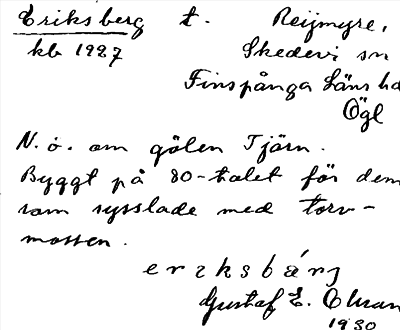 Eriksberg t. Reijmyre,
kb 1927 Skedevi sn
Finspånga Läns hd
Ögl
N. ö. om gölen Tjärn.
Byggt på 80-talet för dem
som sysslade med torv-
mossen.
erıksbárj
Gustaf E.
1930